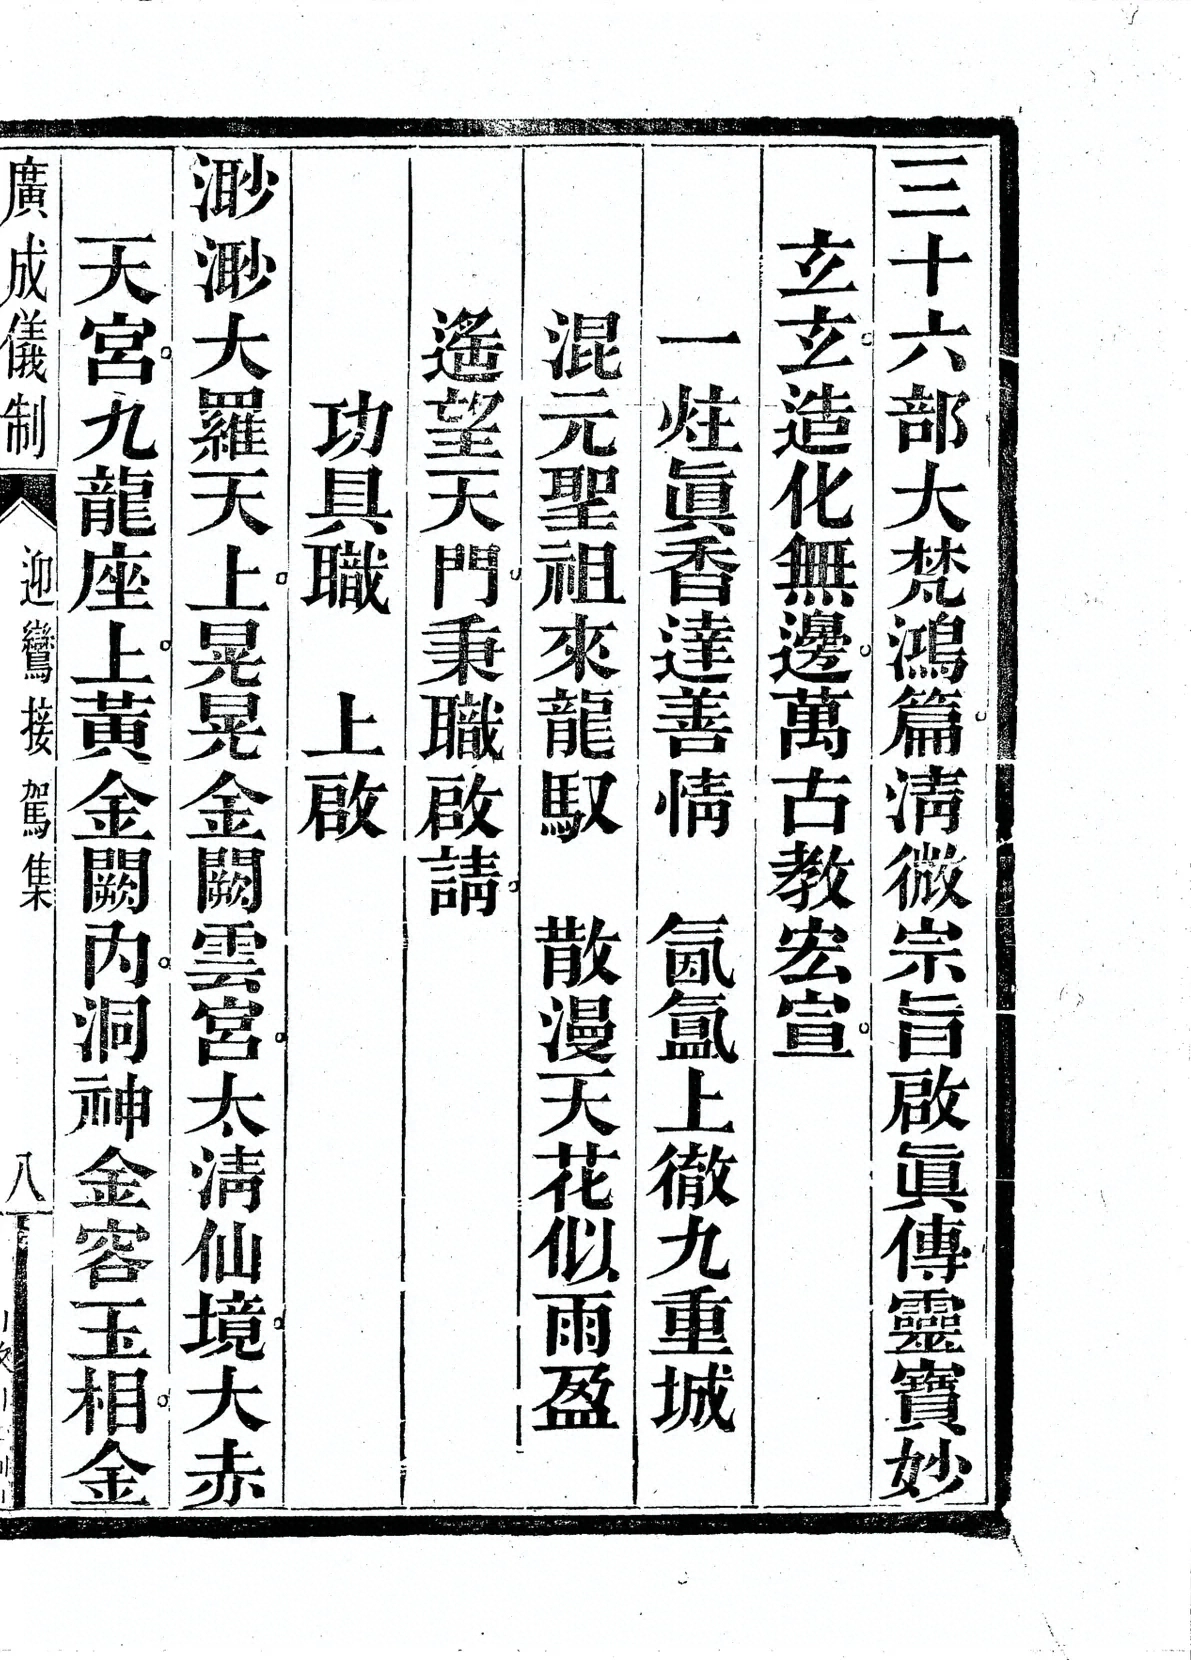 三十六部大梵鴻篇。淸微宗旨啟眞傳靈寶妙
玄玄。造化無邊。萬古教宏宣。
一炷眞香達善情　氤氳上徹九重城
混元聖祖來龍馭　散漫天花似雨盈
遙望天門。秉職啟請。
功具職　上啟
渺渺大羅天上。晃晃金闕雲宮。太淸仙境。大赤
天宮。九龍座上。黃金闕內。洞神金容玉相。金
廣成儀制　迎鸞接駕集　八